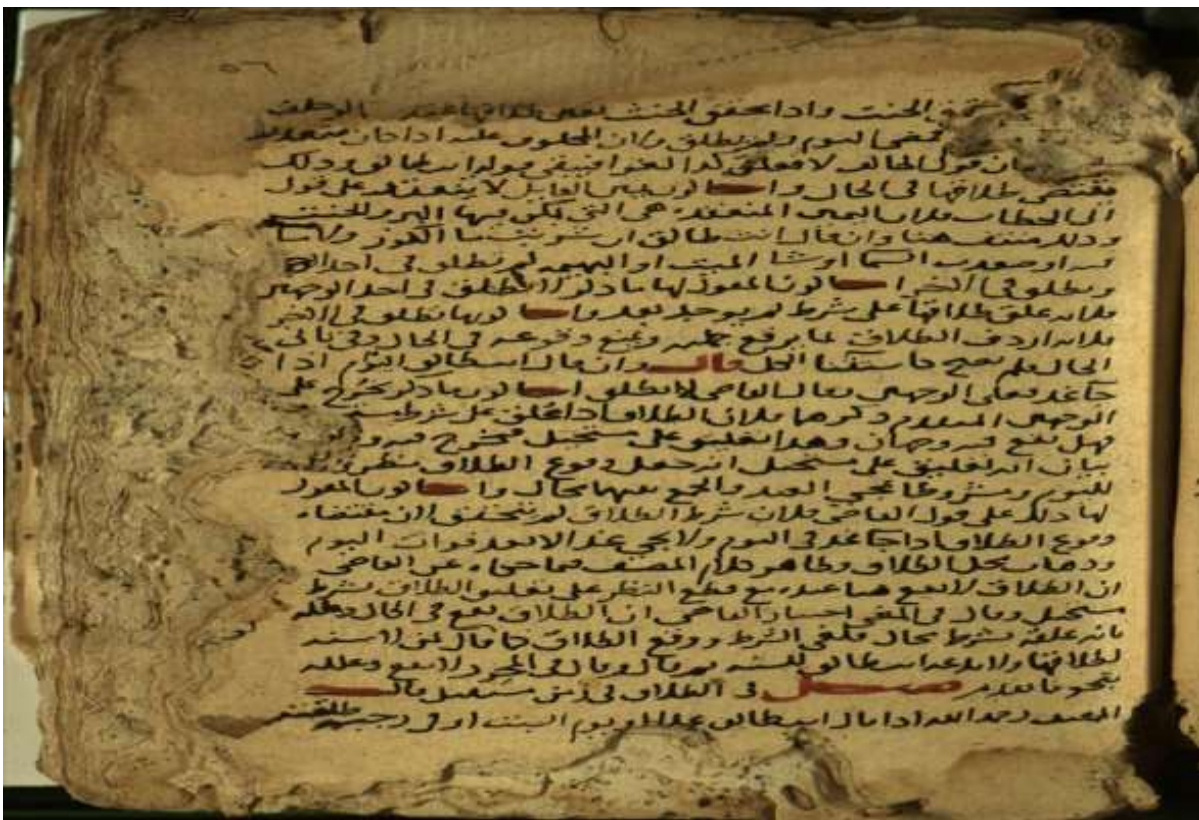 الحنث واذا تحقق الحنث
اليوم ولم يطلق ولان المحلوف عليه اذا كان متعذرا
قول الحالف لا فعلت كذا لغوا فيبقى قوله انت طالق وذلك
يقتضي طلاقها في الحال واما كون يمين القايل لا ينعقد على قول
ابي الخطاب فلان اليمين المنعقدة هي التي يمكن فيها البر والحنث
وذلك منتف هنا وان قال انت طالق ان شربت ما الكوز ولا ما
فيه او صعدت السما او شا الميت او البهيمة لم تطلق في احد
وتطلق في الاخر اما كون المقول لها ما ذكر لا تطلق في احد الوجهين
فلانه علق طلاقها على شرط لم يوجد بعد واما كونها تطلق في الاخر
فلانه اردف الطلاق بما يرفع جملته ويمنع وقوعه في الحال وفي ثاني
الحال فلم يصح كاستثنا الكل قال وان قال انت طالق اليوم اذا
جا غد فعلى الوجهين وقال القاضي لا تطلق اما كون ما ذكر يخرج على
الوجهين المتقدم ذكرهما فلان الطلاق اذا علق على شرط مستحيل
فهل يقع فيه وجهان وهذا تعليق على مستحيل فيخرج فيه
بيان انه تعليق على مستحيل انه جعل وقوع الطلاق
لليوم ومشروطا بمجي الغد والجمع بينهما محال واما كون المقول
لها ذلك على قول القاضي فلان شرط الطلاق لم يتحقق لان مقتضاه
وقوع الطلاق اذا جا غد في اليوم ولا يجي غد الا بعد فوات اليوم
وذهاب محل الطلاق وظاهر كلام المصنف فيما حكاه عن القاضي
ان الطلاق لا يقع هنا عنده مع قطع النظر على تعليق الطلاق بشرط
مستحيل وقال في المغني اختيار القاضي ان الطلاق يقع في الحال وعلله
بانه علقه بشرط محال فلغى الشرط ووقع الطلاق كما قال لمن لا سنة
لطلاقها ولا بدعة انت طالق للسنة ثم قال وقال في المجرد لا يقع وعلله
بنحو ما تقدم فصل في الطلاق في زمن مستقبل قال
المصنف رحمه الله اذا قال انت طالق غدا او يوم السبت او في رجب طلقت